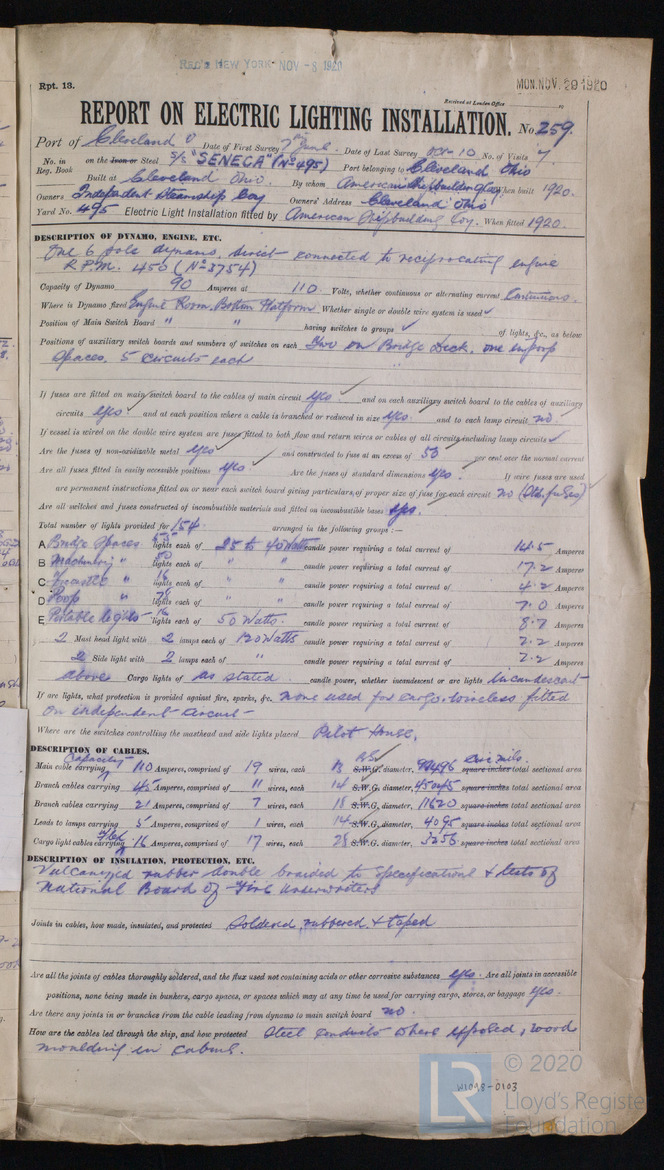 REC'D NEW YORK NOV -8 1920
Rpt. 13.
MON. NOV. 29 1920
Received at London Office
REPORT ON ELECTRIC LIGHTING INSTALLATION. No. 259.
Port of Cleveland O Date of First Survey 7th June Date of Last Survey Oct-10 No. of Visits 7
No. in Reg. Book on the Iron or Steel S/S "SENECA" (No 495) Port belonging to Cleveland Ohio
Built at Cleveland Ohio. By whom American Shipbuilding Coy When built 1920.
Owners Independent Steamship Coy Owners' Address Cleveland Ohio
Yard No. 495 Electric Light Installation fitted by American Shipbuilding Coy. When fitted 1920.
DESCRIPTION OF DYNAMO, ENGINE, ETC.
One 6 pole dynamo, direct connected to reciprocating engine
R.P.M. 450 (No 3754)
Capacity of Dynamo 90 Amperes at 110 Volts, whether continuous or alternating current Continuous.
Where is Dynamo fixed Engine Room Bottom Platform Whether single or double wire system is used ✓
Position of Main Switch Board " " having switches to groups ✓ of lights, &c., as below
Positions of auxiliary switch boards and numbers of switches on each Two on Bridge Deck, one in poop
spaces, 5 circuits each
If fuses are fitted on main switch board to the cables of main circuit yes ✓ and on each auxiliary switch board to the cables of auxiliary
circuits yes ✓ and at each position where a cable is branched or reduced in size yes and to each lamp circuit no
If vessel is wired on the double wire system are fuses fitted to both flow and return wires or cables of all circuits including lamp circuits ✓
Are the fuses of non-oxidizable metal yes ✓ and constructed to fuse at an excess of 50 per cent over the normal current
Are all fuses fitted in easily accessible positions yes ✓ Are the fuses of standard dimensions yes. If wire fuses are used
are permanent instructions fitted on or near each switch board giving particulars of proper size of fuse for each circuit no
Are all switches and fuses constructed of incombustible materials and fitted on incombustible bases yes.
Total number of lights provided for 154 arranged in the following groups :—
A Bridge Spaces lights each of 25 to 40 Watts candle power requiring a total current of 14.5 Amperes
B Machinery " 50 lights each of " " candle power requiring a total current of 17.2 Amperes
C Forecastle " 16 lights each of " " candle power requiring a total current of 4.2 Amperes
D Poop " lights each of " " candle power requiring a total current of 7.0 Amperes
E Portable lights 16 lights each of 50 Watts. candle power requiring a total current of 8.7 Amperes
2 Mast head light with 2 lamps each of 120 Watts candle power requiring a total current of 2.2 Amperes
2 Side light with 2 lamps each of " candle power requiring a total current of 2.2 Amperes
above Cargo lights of as stated candle power, whether incandescent or arc lights incandescent
If arc lights, what protection is provided against fire, sparks, &c. none used for cargo. wireless fitted
on independent circuit
Where are the switches controlling the masthead and side lights placed Pilot House.
DESCRIPTION OF CABLES.
Capacity
Main cable carrying 110 Amperes, comprised of 19 wires, each 13 S.W.G. diameter, 99496 cir mils. square inches total sectional area
Branch cables carrying 45 Amperes, comprised of 11 wires, each 14 S.W.G. diameter, 45045 square inches total sectional area
Branch cables carrying 21 Amperes, comprised of 7 wires, each 18 S.W.G. diameter, 11620 square inches total sectional area
Leads to lamps carrying 5 Amperes, comprised of 1 wires, each 14 S.W.G. diameter, 4095 square inches total sectional area
Cargo light cables carrying 16 Amperes, comprised of 17 wires, each 28 S.W.G. diameter, 3256 square inches total sectional area
DESCRIPTION OF INSULATION, PROTECTION, ETC.
Vulcanized rubber double braided to specifications & tests of
National Board of Fire Underwriters
Joints in cables, how made, insulated, and protected Soldered, rubbered & taped
Are all the joints of cables thoroughly soldered, and the flux used not containing acids or other corrosive substances yes. Are all joints in accessible
positions, none being made in bunkers, cargo spaces, or spaces which may at any time be used for carrying cargo, stores, or baggage yes.
Are there any joints in or branches from the cable leading from dynamo to main switch board no.
How are the cables led through the ship, and how protected Steel conduits where exposed, wood
moulding in cabins.
W1098-0103
LR
© 2020
Lloyd's Register
Foundation